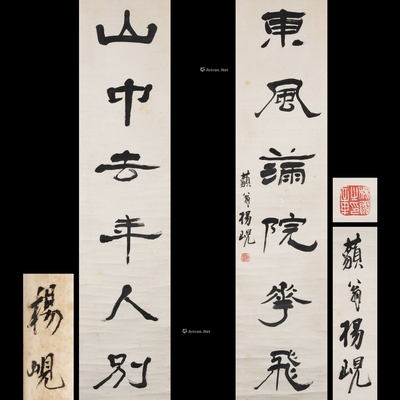 東風滿院華飛
藐翁楊峴
山中去年人別
藐翁楊峴
楊峴
Artron.Net
Artron.Net